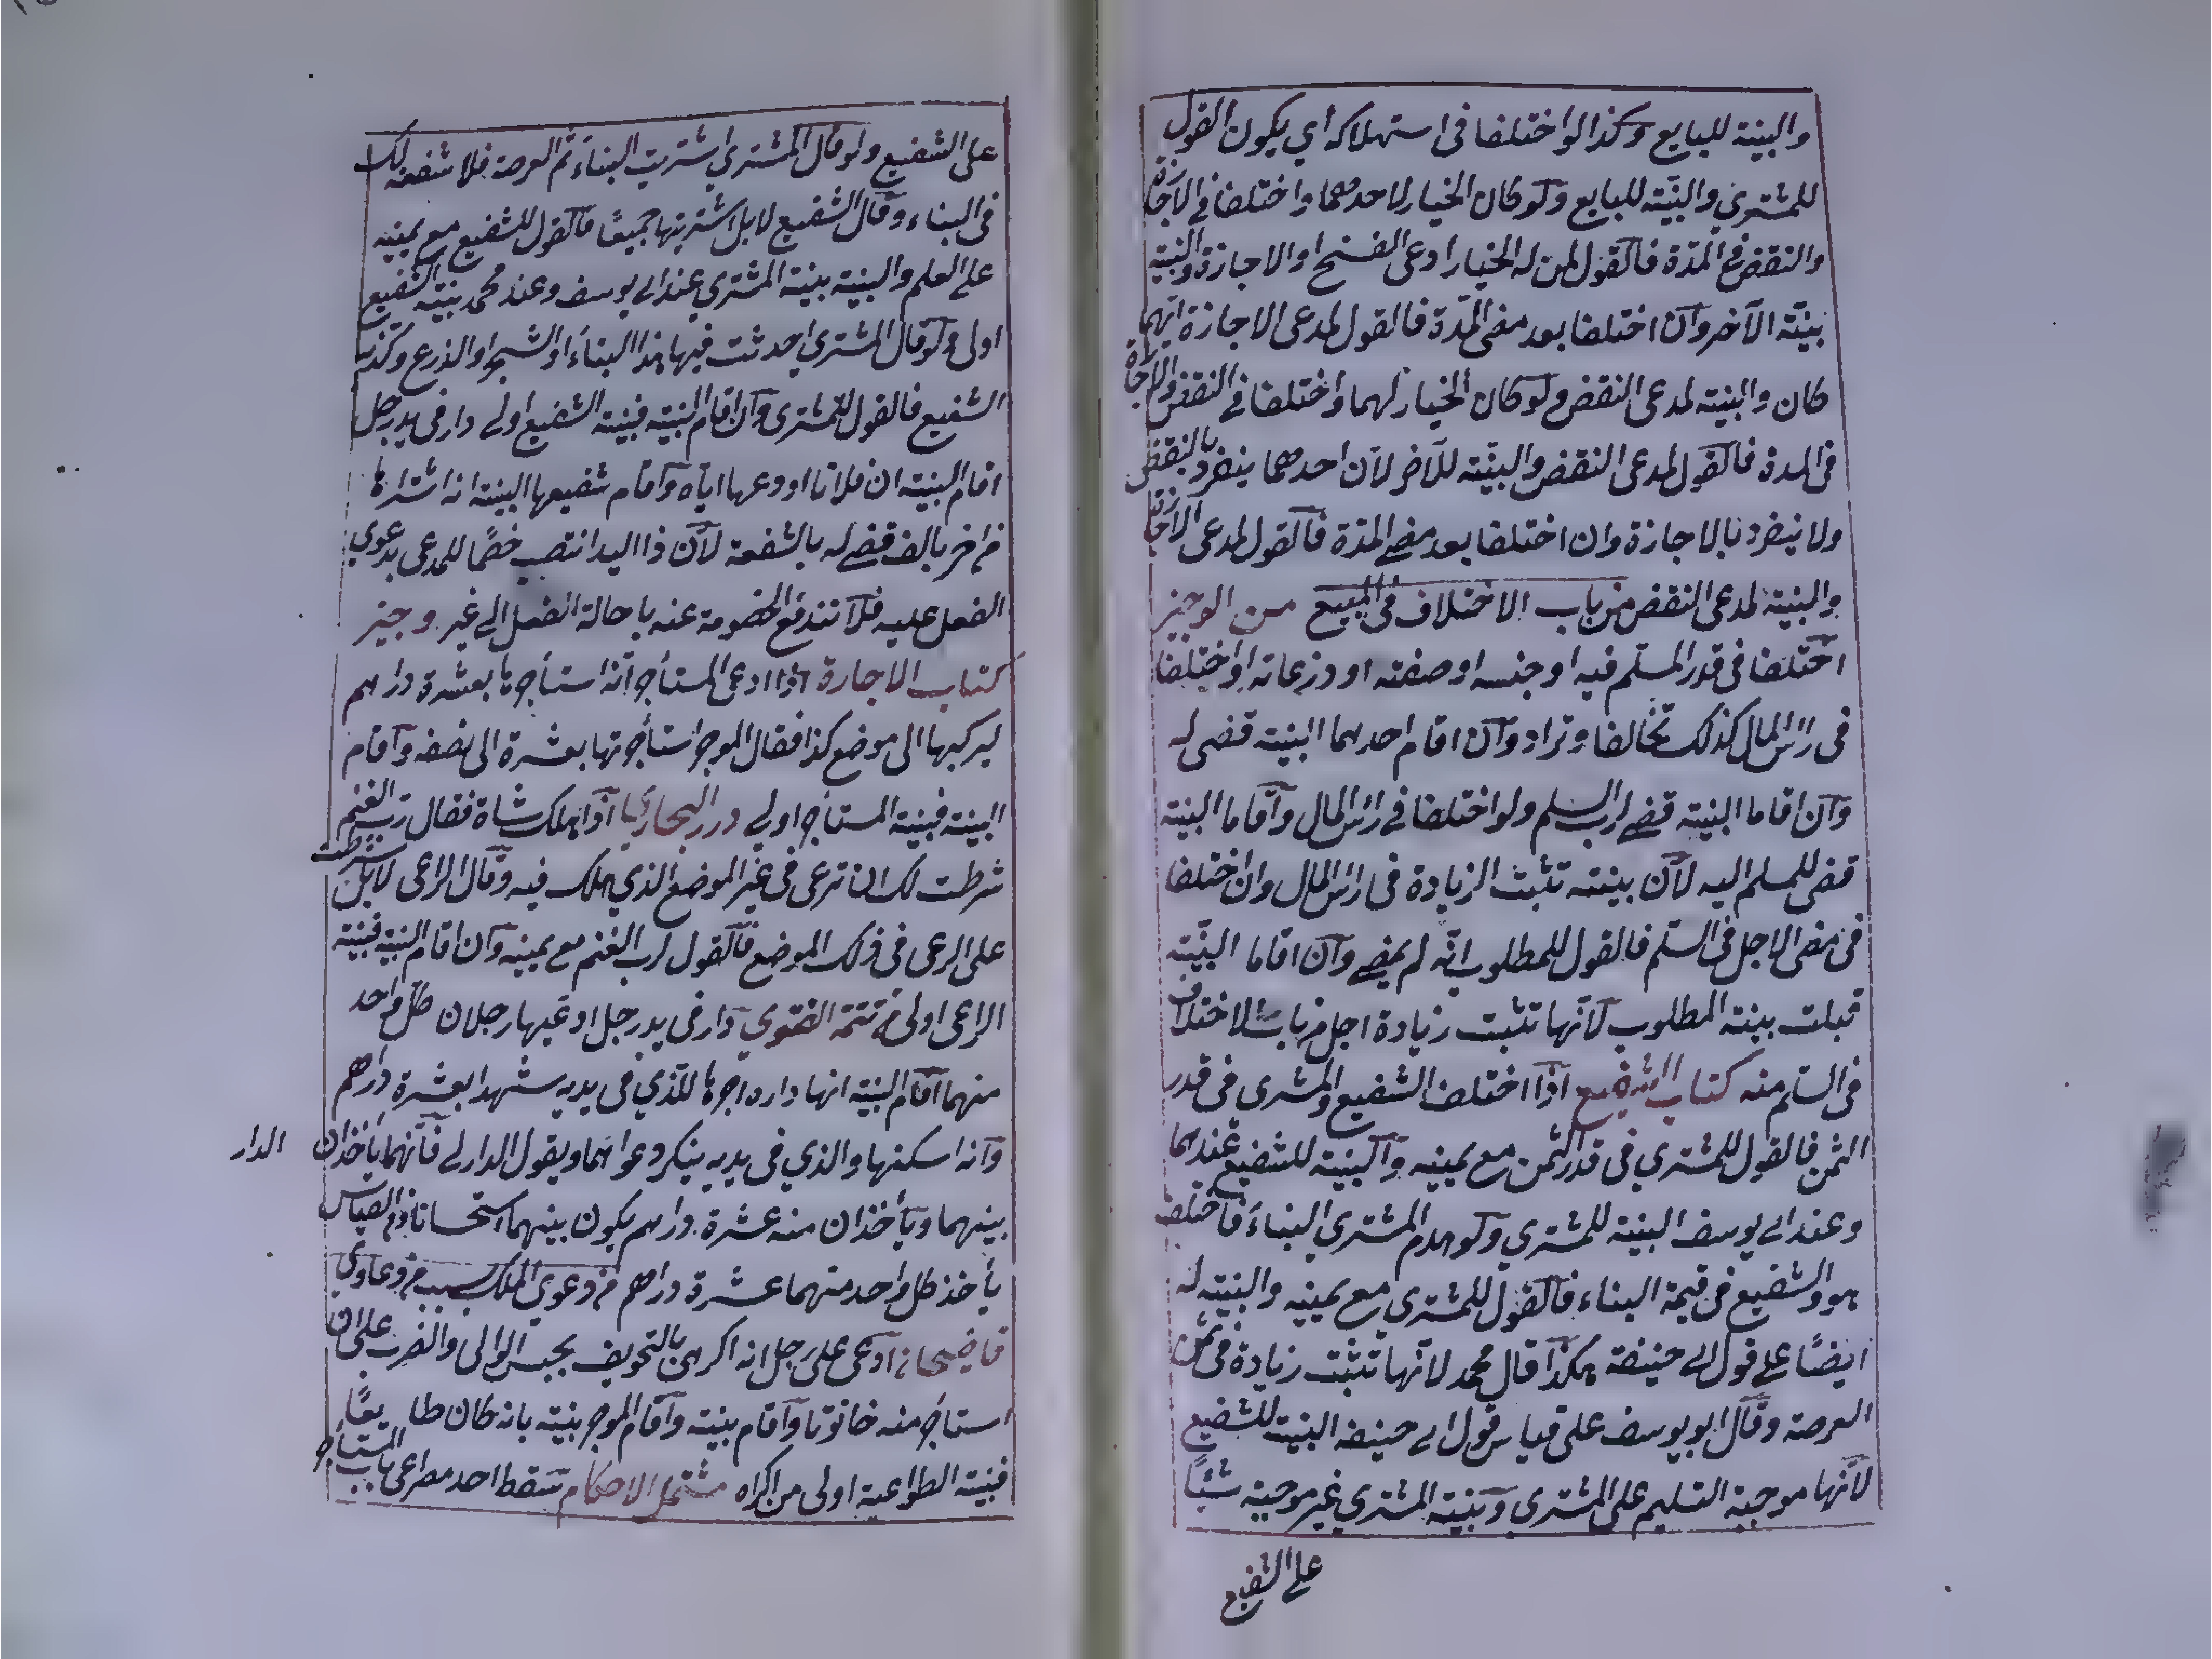 والبينة للبايع وكذا لو اختلفا فى استهلاكه أي يكون القول
للمشتري والبيّنة للبايع ولو كان الخيار لاحدهما واختلفا في الاجازة
والنقض في المدّة فالقول لمن له الخيار ادعى الفسخ او الاجازة والبينة
بينة الآخر وان اختلفا بعد مضى المدّة فالقول لمدعى الاجازة ايّهما
كان والبينة لمدعى النقض ولو كان الخيار لهما واختلفا في النقض والاجازة
فى المدة فالقول لمدعى النقض والبيّنة للآخر لان احدهما ينفرد بالنقض
ولا ينفرد بالاجازة وان اختلفا بعد مضے المدّة فالقول لمدعى الاجازة
والبينة لمدعى النقض من باب الاختلاف فى المبيع من الوجيز
اختلفا فى قدر المسلم فيه او جنسه او صفته او درعاته او اختلفا
فى راس المال كذلك تحالفا وترادا وان اقام احدهما البينة قضى له
وان اقاما البينة قضے لرب السلم ولو اختلفا فے راس المال واقاما البينة
قضى للمسلم اليه لان بينته تثبت الزيادة فى راس المال وان اختلفا
فى مضى الاجل فى السّلم فالقول للمطلوب انّه لم يمضے وان اقاما البيّنة
قبلت بينة المطلوب لانّها تثبت زيادة اجل من باب الاختلاف
فى السّلم منه كتاب الشفيع اذا اختلف الشفيع والمشترى فى قدر
الثمن فالقول للمشتري فى قدر الثمن مع يمينه والبينة للشفيع عندهما
وعند ابے يوسف البينة للمشتري ولو هدم المشتري البناء فاختلف
هو والشفيع فى قيمة البناء فالقول للمشتري مع يمينه والبينة له
ايضًا علے قول ابے حنيفة هكذا قال محمد لانّها تثبت زيادة فى ثمن
العرصة وقال ابو يوسف على قياس قول ابے حنيفه البينة للشفيع
لانّها موجبة التسليم على المشتري وبينة المشتري غير موجبة شيئًا
علے الشفيع
على الشفيع ولو قال المشتري اشتريت البناء ثم العرصة فلا شفعة لك
فى البناء وقال الشفيع لا بل اشتريتها جميعًا فالقول للشفيع مع يمينه
علے العلم والبينة بينة المشتري عند ابے يوسف وعند محمد بينة الشفيع
اولى ولو قال المشتري احدثت فيها هذا البناء او الشجر او الذرع وكذبه
الشفيع فالقول للمشترى وان اقام البينة فبينة الشفيع اولے دار فى يد رجل
اقام البينة ان فلانا اودعها ايّاه واقام شفيعها البينة انه اشتراها
من اخر بالف قضے له بالشفعة لان ذا اليد انتصب خصمًا للمدعى بدعوي
الفعل عليه فلا تندفع الخصومة عنه باحالة الفعل الے غير وجيز
كتاب الاجارة اذا ادعى المستأجر انّه استأجرها بعشرة دراهم
ليركبها الى موضع كذا فقال الموجر استأجرتها بعشرة الى نصفه واقام
البينة فبينة المستاجر اولے درر البحار اذا هلك شاة فقال رب الغنم
شرطت لك ان ترعى فى غير الموضع الذي هلك فيه وقال الراعى لا بل شرطت
على الرعى فى ذلك الموضع فالقول لرب الغنم مع يمينه وان اقام البينة فبينة
الراعى اولى من تتمة الفتوي دار فى يد رجل ادعيها رجلان كل واحد
منهما اقام البينة انها داره اجرها للّذي فى يديه شهرا بعشرة دراهم
وانه اسكنها والذي فى يديه ينكر دعواهما ويقول الدار لے فانّهما يأخذان الدار
بينهما ويأخذان منه عشرة دراهم يكون بينهما استحسانا وفى القياس
يأخذ كل واحد منهما عشرة دراهم من دعوي الملك بسبب من دعاوي
قاضيخان ادعى على رجل انه اكرهن بالتخويف بحبس الوالى والضرب على ان
استاجر منه حانوتا واقام بينة واقام الموجر بينة بانه كان طايعًا
فبينة الطواعية اولى من اكراه مشتمل الاحكام سقط احد مصراعى باب المستأجر